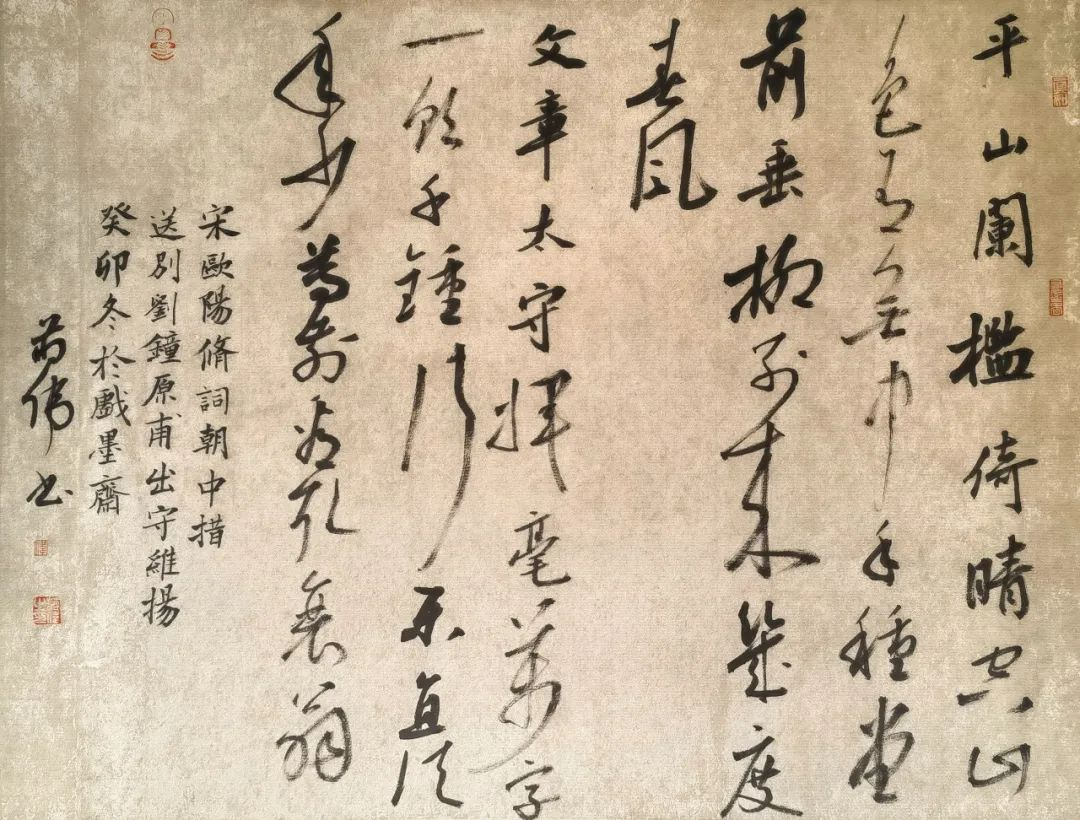 平山闌檻倚晴空山
色有無中手種堂
前垂柳別來幾度
春風
文章太守揮毫萬字
一飲千鍾行樂直須
年少尊前看取衰翁
宋歐陽脩詞朝中措
送別劉鐘原甫出守維揚
癸卯冬於戲墨齋
伟书